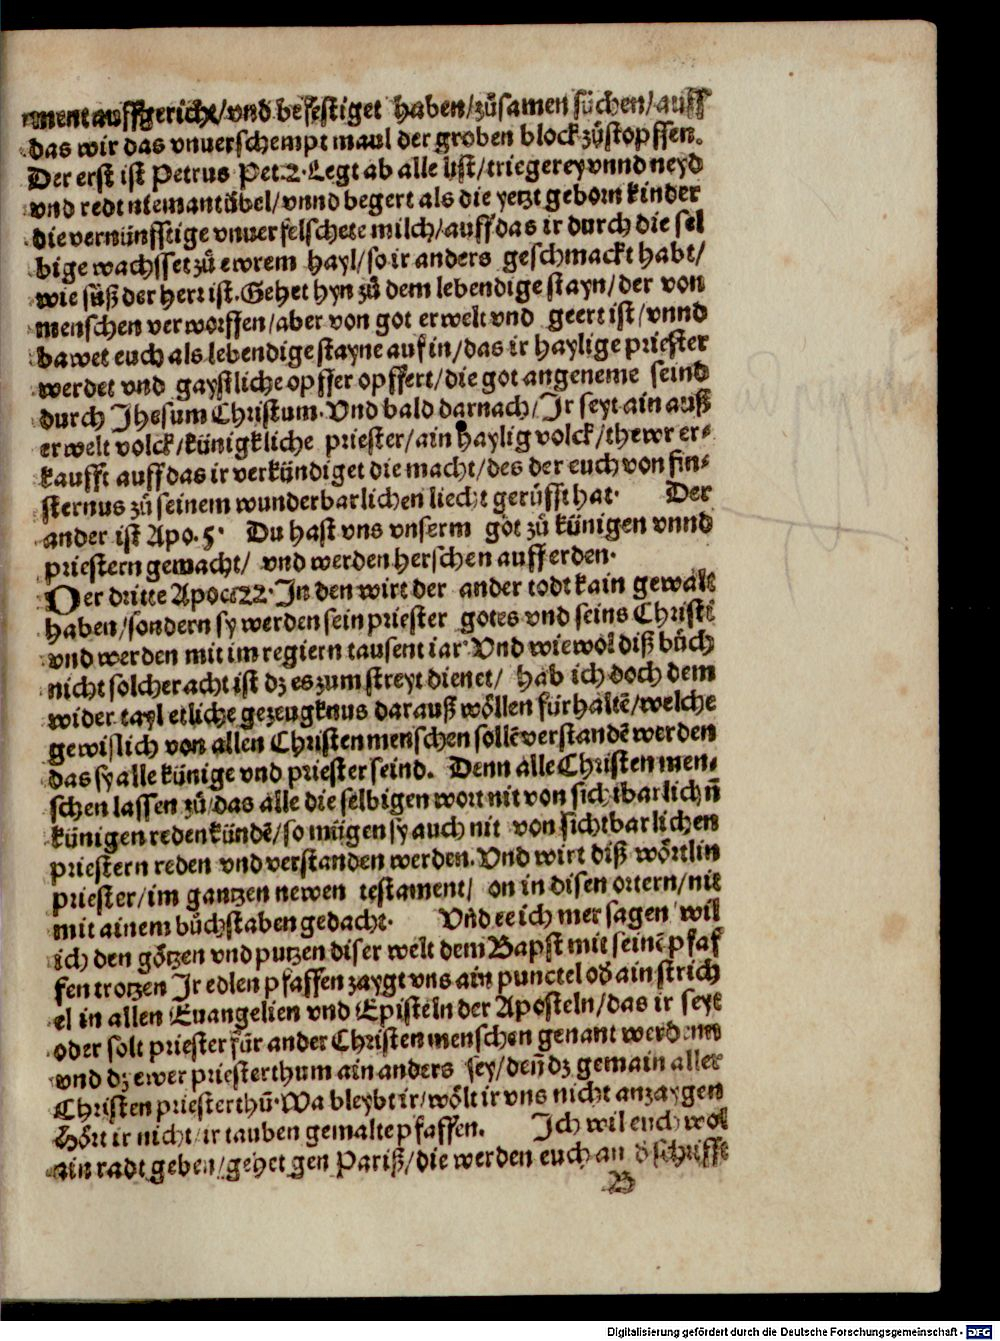 ment auffgericht/vnd befestiget haben/zůsamen sůchen/auff
das wir das vnuerschempt maul der groben block zůstopffen.
Der erst ist Petrus Pet.2. Legt ab alle list/triegerey vnnd neyd
vnd redt niemant übel/vnnd begert als die yetzt geborn kinder
die vernünfftige vnuerfelschete milch/auff das ir durch die sel
bige wachsset zů ewrem hayl/so ir anders geschmackt habt/
wie süß der herr ist. Gehet hyn zů dem lebendige stayn/der von
menschen verworffen/aber von got erwelt vnd geert ist/vnnd
bawet euch als lebendige stayne auf in/das ir haylige priester
werdet vnd gaystliche opffer opffert/die got angeneme seind
durch Jhesum Christum. Vnd bald darnach/Jr seyt ain auß
erwelt volck/künigkliche priester/ain haylig volck/thewr er⸗
kaufft auff das ir verkündiget die macht/des der euch von fin⸗
sternus zů seinem wunderbarlichen liecht gerůfft hat. Der
ander ist Apo.5. Du hast vns vnserm got zů künigen vnnd
priestern gemacht/ vnd werden herschen auff erden.
Der dritte Apoc.22. Jn den wirt der ander todt kain gewalt
haben/sondern sy werden sein priester gotes vnd seins Christi
vnd werden mit im regiern tausent iar. Vnd wiewol diß bůch
nicht solcher acht ist dz es zum streyt dienet/ hab ich doch dem
wider tayl etliche gezeugknus darauß wöllen fürhaltē/welche
gewislich von allen Christenmenschen sollē verstandē werden
das sy alle künige vnd priester seind. Denn alle Christen men⸗
schen lassen zů/das alle die selbigen wort nit von sichtbarlichn̄
künigen reden kündē/so mügen sy auch nit von sichtbarlichen
priestern reden vnd verstanden werden. Vnd wirt diß wörtlin
priester/im gantzen newen testament/ on in disen ortern/nit
mit ainem bůchstaben gedacht. Vnd ee ich mer sagen wil
ich den götzen vnd putzen diser welt dem Bapst mit seinē pfaf
fen trotzen Jr edlen pfaffen zaygt vns ain punctel od̄ ain strich
el in allen Euangelien vnd Episteln der Aposteln/das ir seyt
oder solt priester für ander Christenmenschen genant werdenn
vnd dz ewer priesterthum ain anders sey/deñ dz gemain aller
Christen priesterthū. Wa bleybt ir/wölt ir vns nicht anzaygen
Hört ir nicht/ir tauben gemalte pfaffen. Jch wil euch wol
ain radt geben/gehet gen Pariß/die werden euch an d̄ schrifft
B
Digitalisierung gefördert durch die Deutsche Forschungsgemeinschaft - DFG